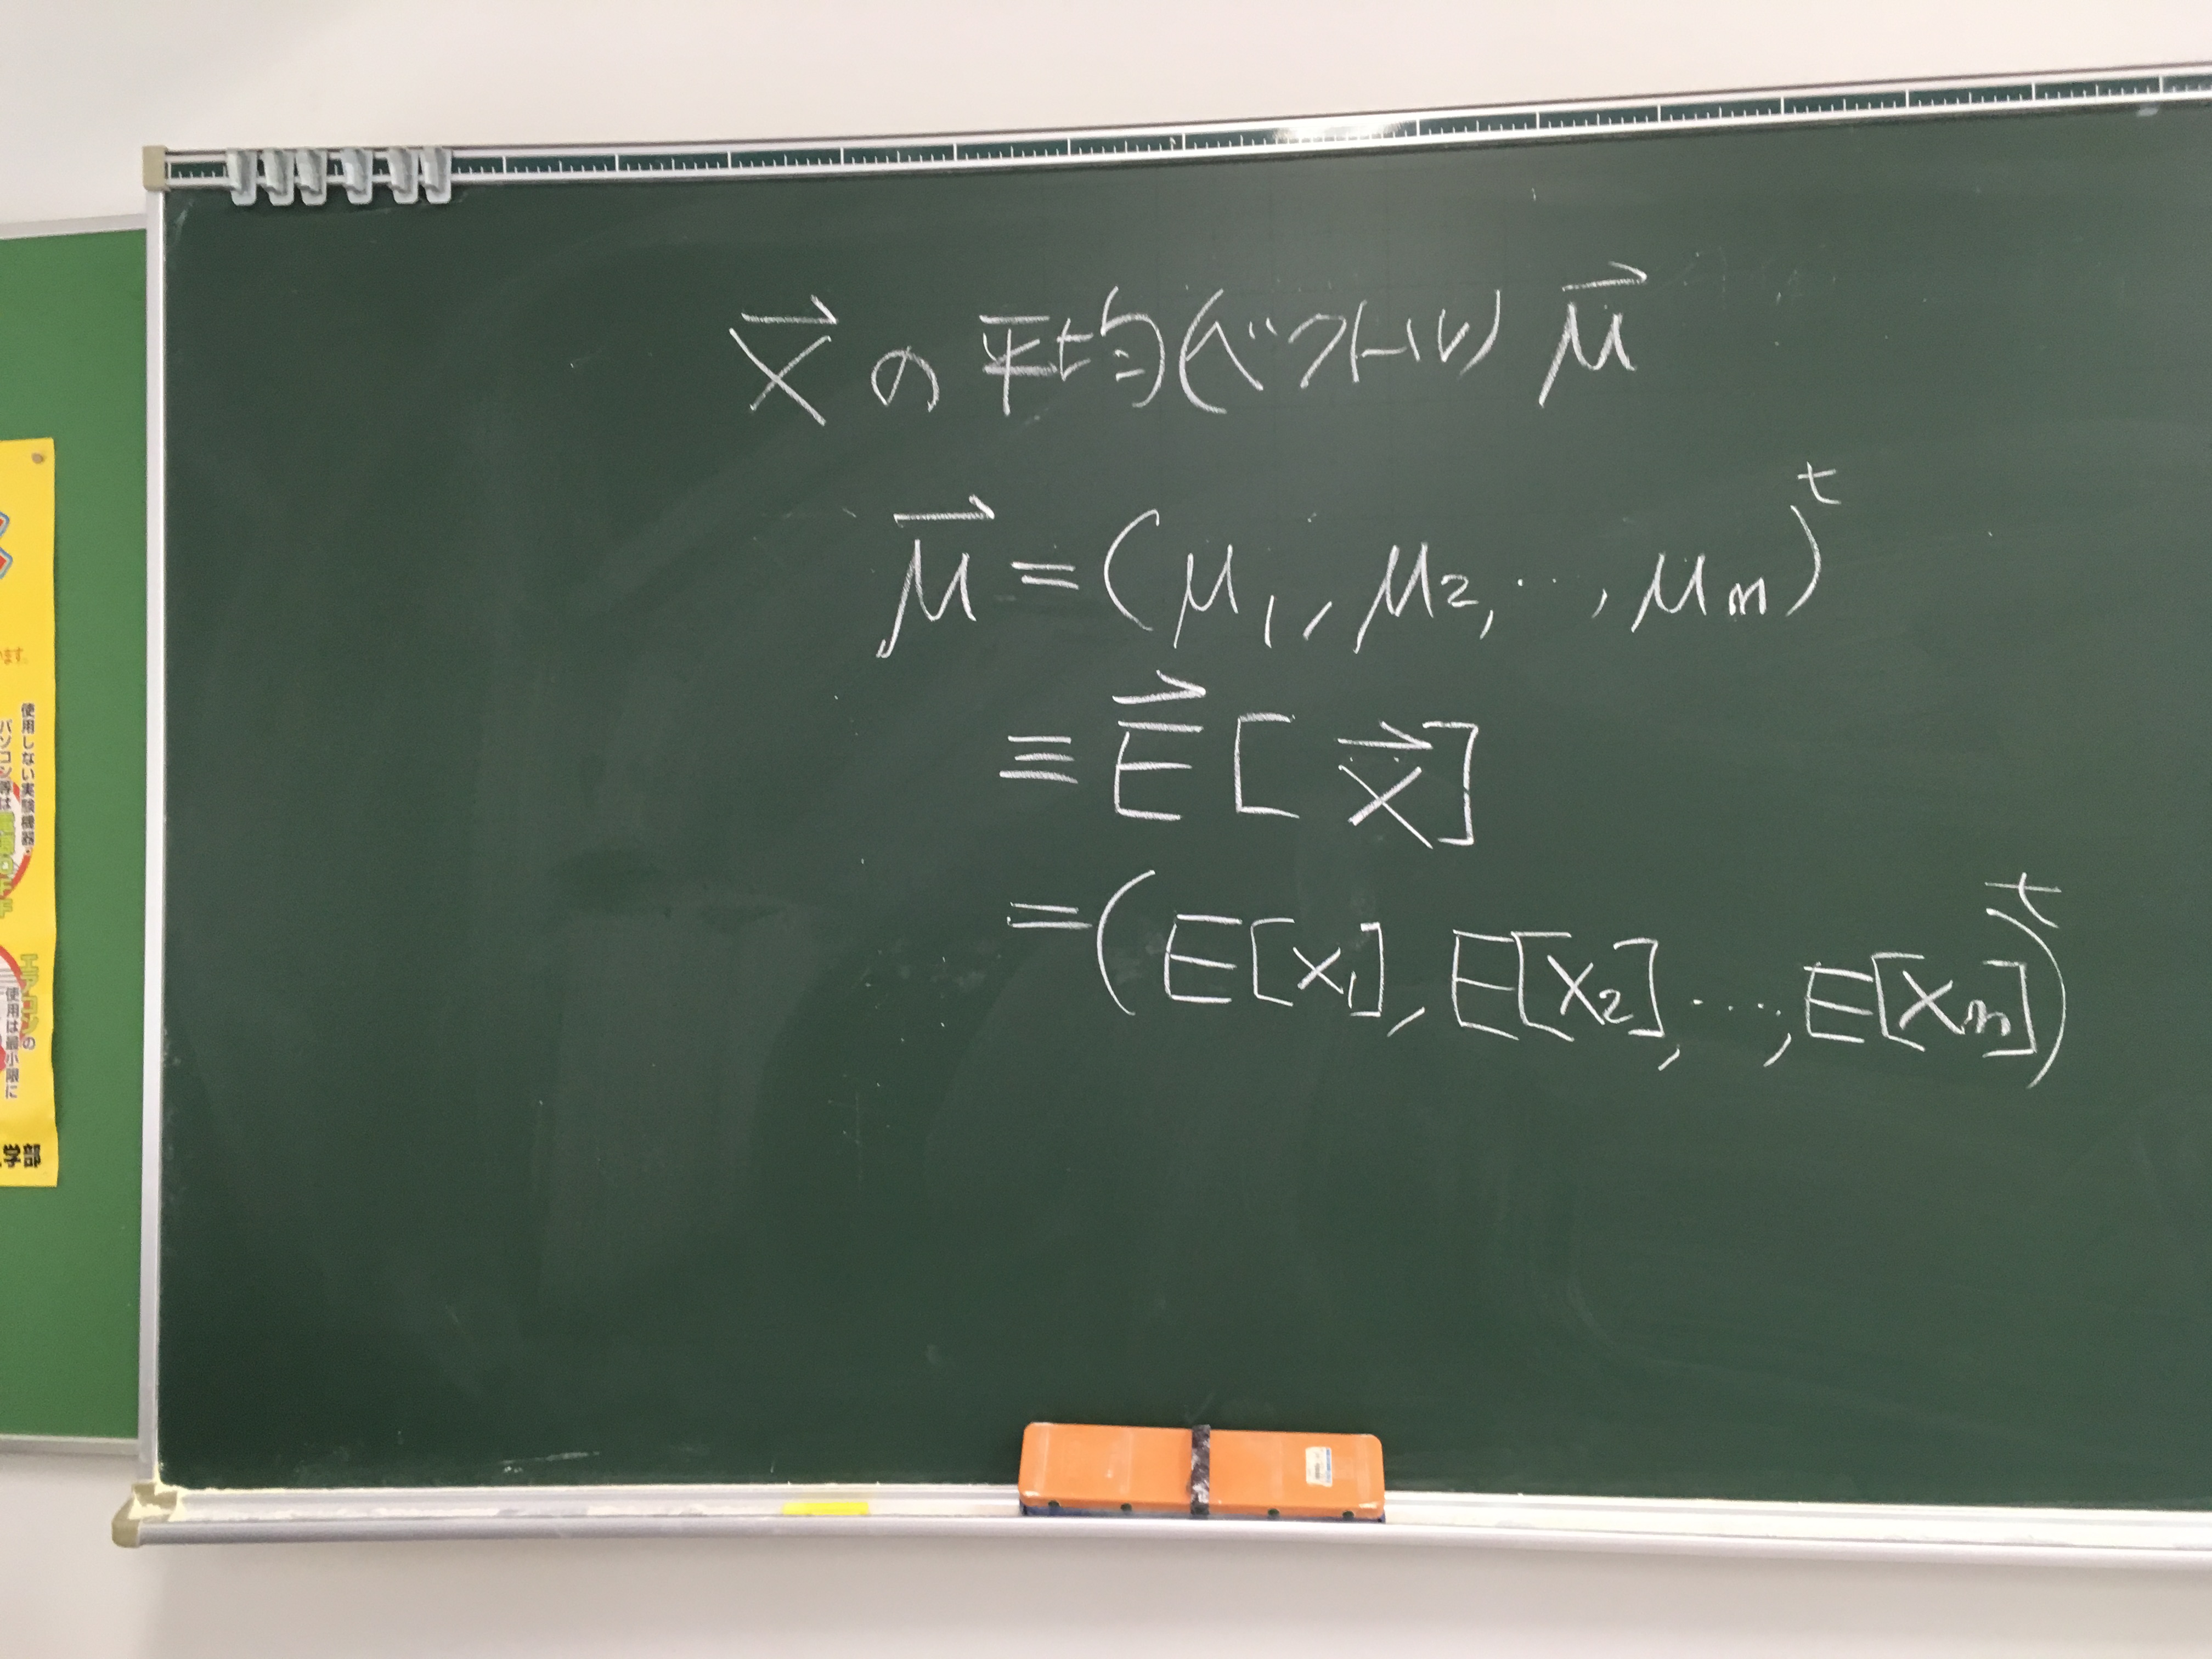 X⃗ の 平均(ベクトル) μ⃗
μ⃗ = (μ₁, μ₂, ‥, μₘ)ᵗ
≡ E⃗[X⃗]
= (E[X₁], E[X₂], ‥‥, E[Xₘ])ᵗ
います。
使用しない実験機器・
パソコン等は
エアコンの
使用は最小限に
学部